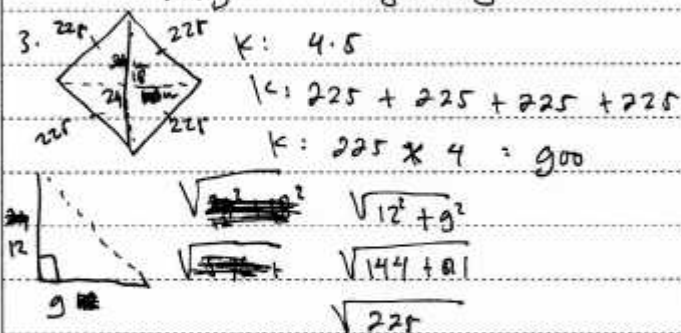 3. 225 225 K: 4.s
18
24
225 225
K: 225 + 225 + 225 + 225
K: 225 x 4 = 900
12
9
√12² + 9²
√144 + 81
√225